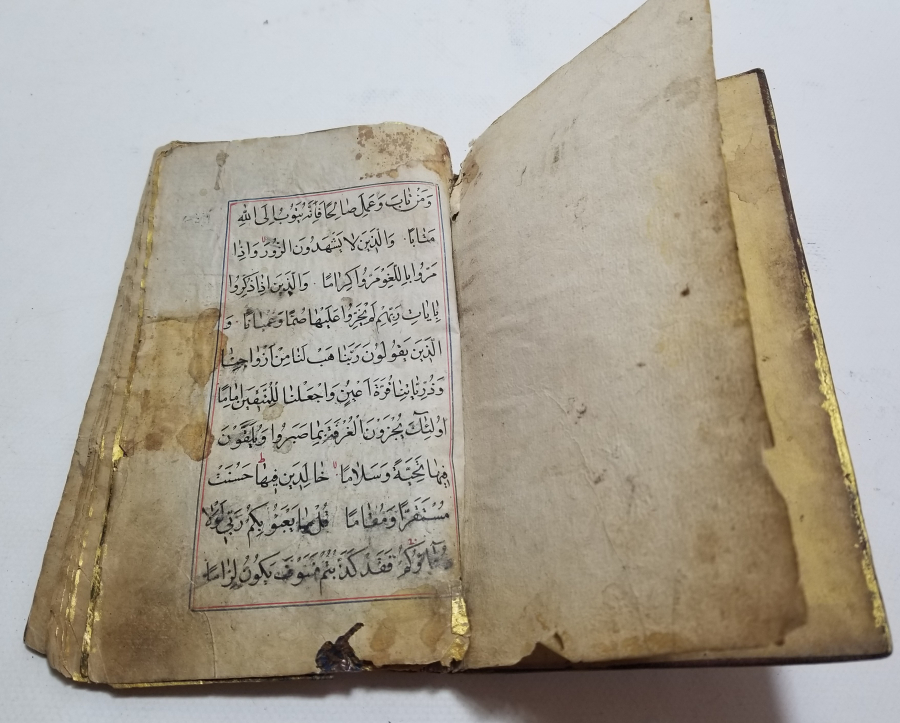 وَمَنْ تَابَ وَعَمِلَ صَالِحًا فَاِنَّهُ يَتُوبُ اِلَى اللّٰهِ
مَتَابًا وَالَّذِينَ لَا يَشْهَدُونَ الزُّورَ وَاِذَا
مَرُّوا بِاللَّغْوِ مَرُّوا كِرَامًا وَالَّذِينَ اِذَا ذُكِّرُوا
بِاٰيَاتِ رَبِّهِمْ لَمْ يَخِرُّوا عَلَيْهَا صُمًّا وَعُمْيَانًا وَ
الَّذِينَ يَقُولُونَ رَبَّنَا هَبْ لَنَا مِنْ اَزْوَاجِنَا
وَذُرِّيَّاتِنَا قُرَّةَ اَعْيُنٍ وَاجْعَلْنَا لِلْمُتَّقِينَ اِمَامًا
اُولٰئِكَ يُجْزَوْنَ الْغُرْفَةَ بِمَا صَبَرُوا وَيُلَقَّوْنَ
فِيهَا تَحِيَّةً وَسَلَامًا خَالِدِينَ فِيهَا حَسُنَتْ
مُسْتَقَرًّا وَمُقَامًا قُلْ مَا يَعْبَؤُا بِكُمْ رَبِّي لَوْلَا
دُعَاؤُكُمْ فَقَدْ كَذَّبْتُمْ فَسَوْفَ يَكُونُ لِزَامًا